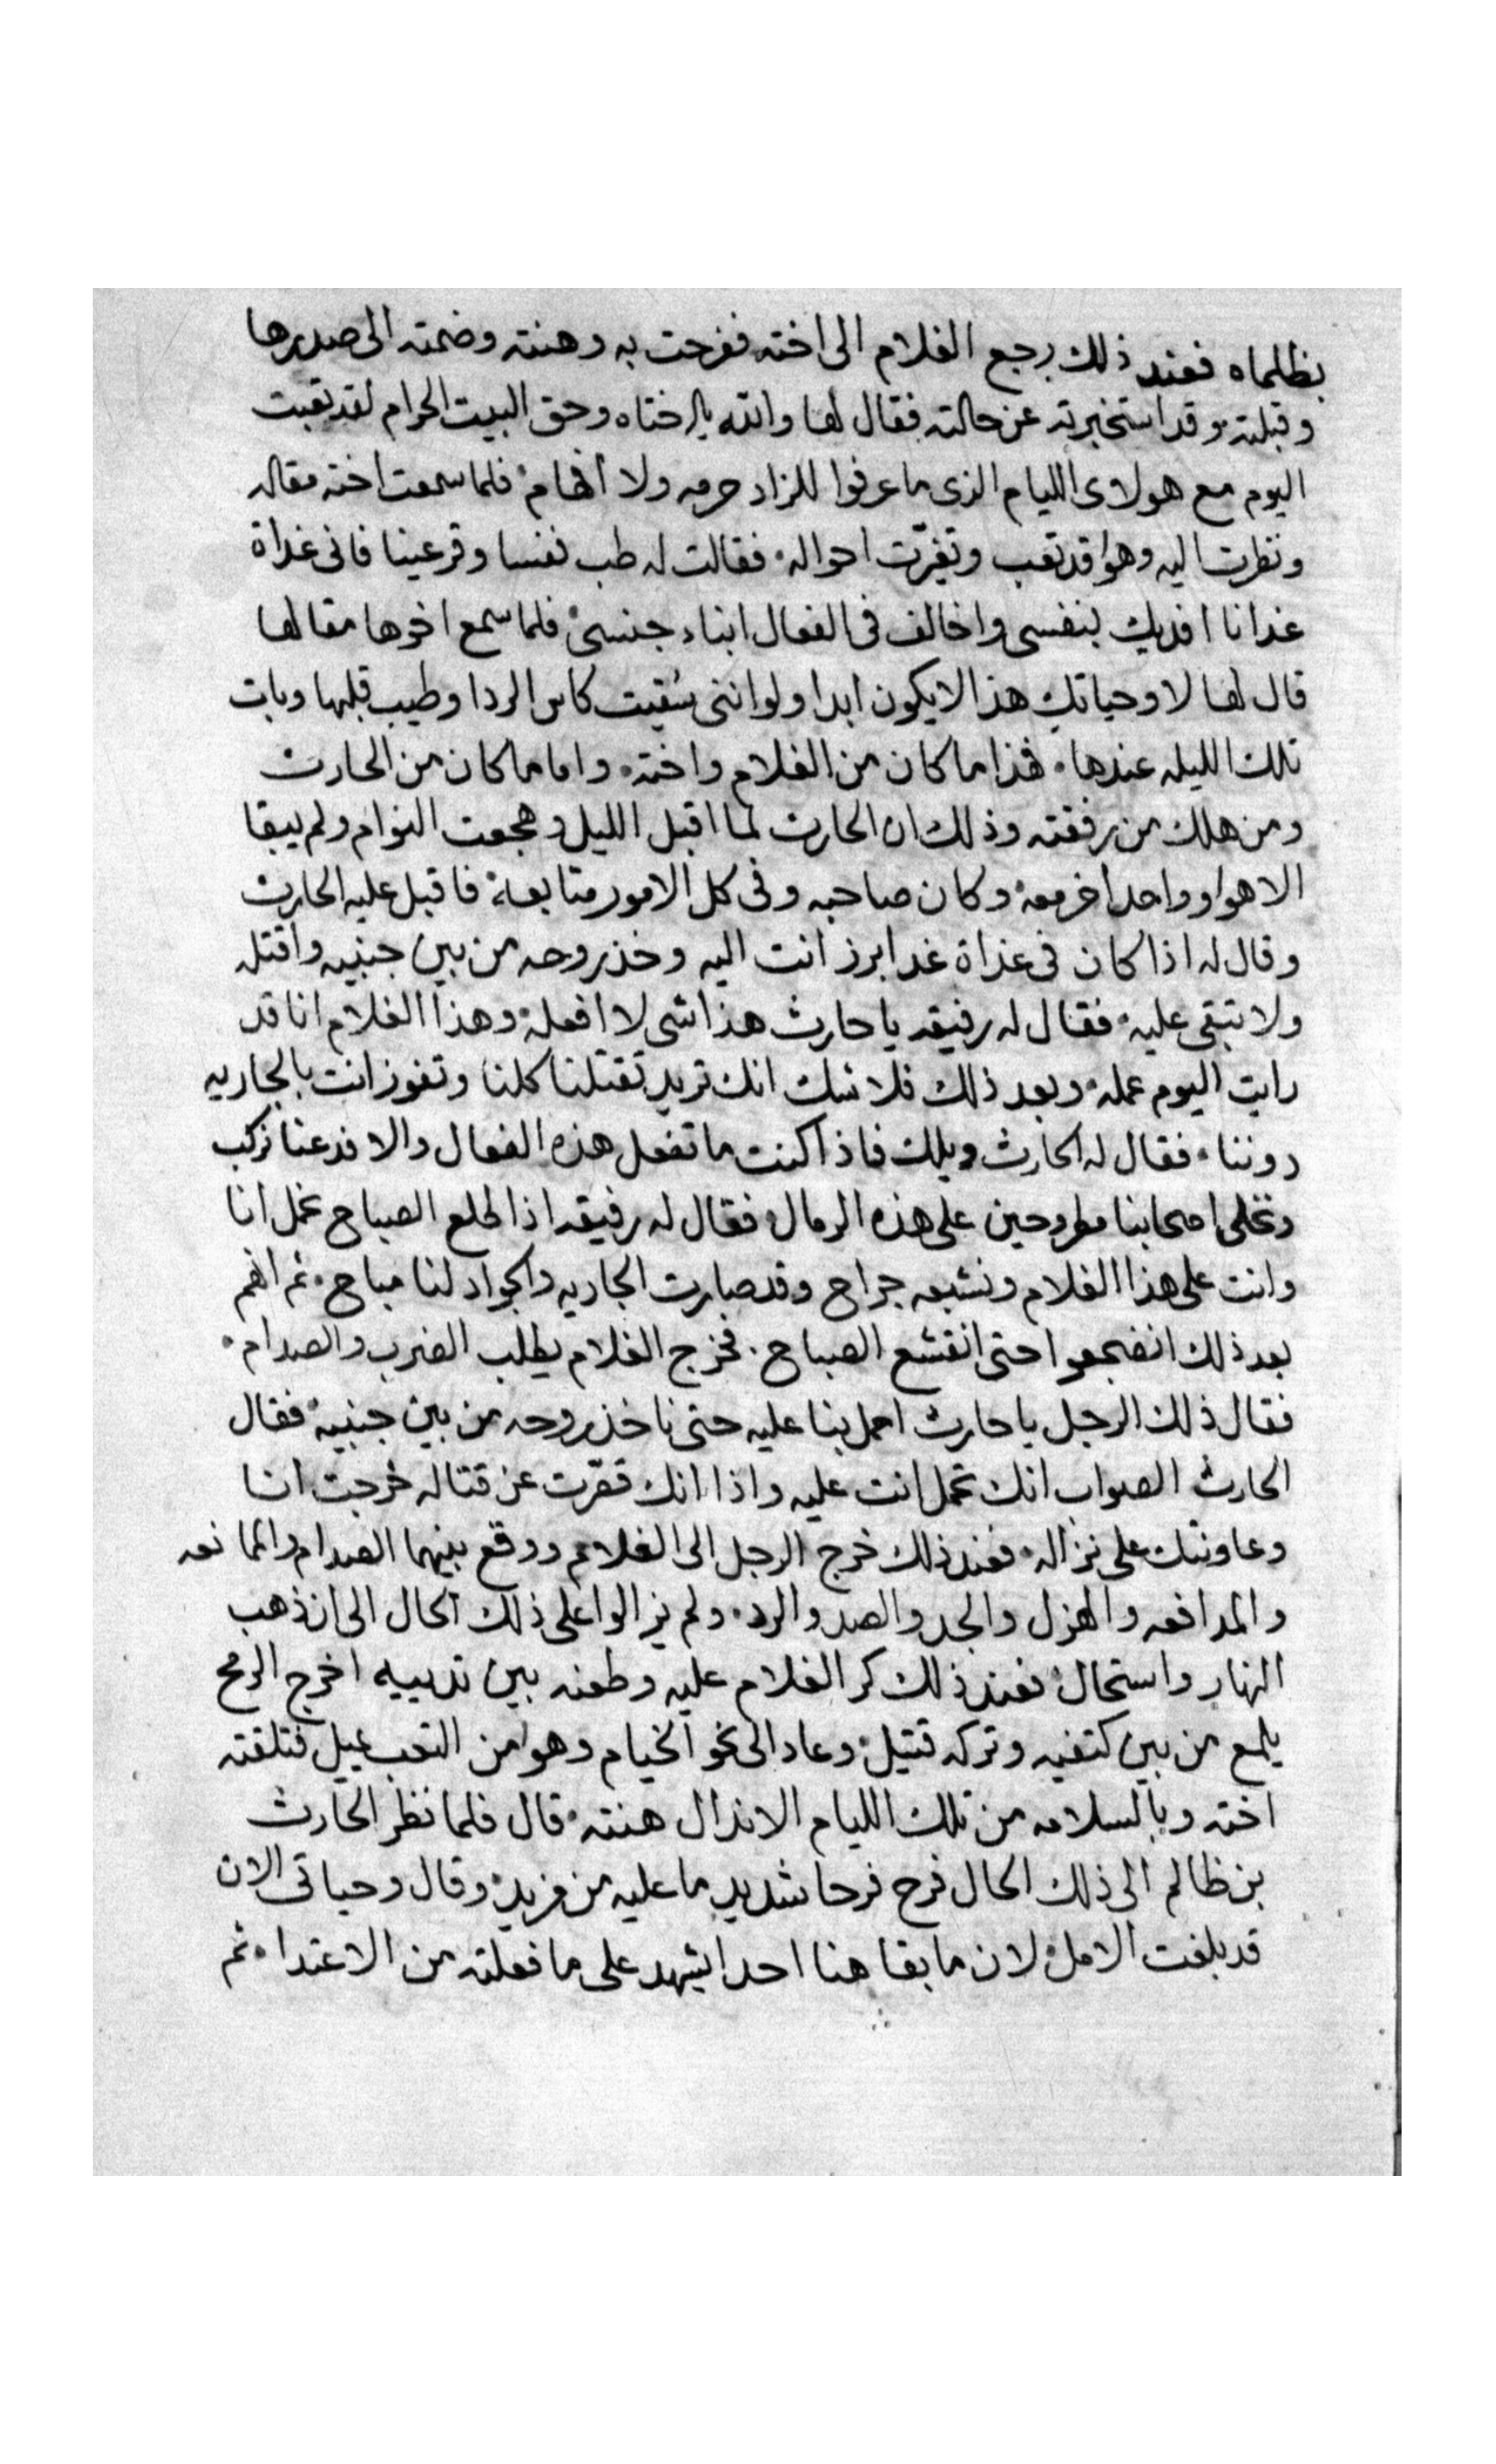 بظلماه فعند ذلك رجع الغلام الى اخته ففرحت به وهنته وضمته الى صدرها
وقبلته وقد استخبرته عن حالته فقال لها والله يا اختاه وحق البيت الحرام لقد تعبت
اليوم مع هولاى الليام الذى ما عرفوا للزاد حرمه ولا افهام فلما سمعت اخته مقاله
ونظرت اليه وهوا قد تعب وتغيّرت احواله فقالت له طب نفسا وقر عينا فانى غداة
غدانا افديك بنفسى واخالف فى الفعال ابناء جنسى فلما سمع اخوها مقالها
قال لها لا وحياتك هذا لايكون ابدا ولو اننى سُقيت كاس الردا وطيب قلبها وبات
تلك الليله عندها هذا ما كان من الغلام واخته واما ما كان من الحارث
ومن هلك من رفقته وذلك ان الحارث لما اقبل الليل وهجعت النوام ولم يبقا
الا هوا وواحدا خر معه وكان صاحبه وفى كل الامور متابعه فاقبل عليه الحارث
وقال له اذا كان فى غداة غد ابرز انت اليه وخذ روحه من بين جنبيه واقتله
ولا تبقى عليه فقال له رفيقه يا حارث هذا شى لا افعله وهذا الغلام انا قد
رايت اليوم عمله وبعد ذلك فلا شك انك تريد تقتلنا كلنا وتفوز انت بالجاريه
دوننا فقال له الحارث ويلك فاذا كنت ما تفعل هذه الفعال والا فدعنا نركب
ونخلى اصحابنا مطروحين على هذه الرمال فقال له رفيقه اذا طلع الصباح نحمل انا
وانت على هذا الغلام ونشبعه جراح وقد صارت الجاريه والجواد لنا مباح ثم انهم
بعد ذلك انضجعوا حتى انقشع الصباح فخرج الغلام يطلب الضرب والصدام
فقال ذلك الرجل يا حارث احمل بنا عليه حتى ناخذ روحه من بين جنبيه فقال
الحارث الصواب انك تحمل انت عليه واذا انك قصّرت عن قتاله خرجت انا
وعاونتك على نزاله فعند ذلك خرج الرجل الى الغلام ووقع بينهما الصدام والممانعه
والمدافعه والهزل والجد والصد والرد ولم يزالوا على ذلك الحال الى ان ذهب
النهار واستحال فعند ذلك كر الغلام عليه وطعنه بين ثدييه اخرج الرمح
يلمع من بين كتفيه وتركه قتيل وعاد الى نحو الخيام وهوا من التعب يميل فتلقته
اخته وبالسلامه من تلك الليام الاندال هنته قال فلما نظر الحارث
بن ظالم الى ذلك الحال فرح فرحا شديد ما عليه من مزيد وقال وحياتى الان
قد بلغت الامل لان ما بقا هنا احدا يشهد على ما فعلته من الاعتدا ثم